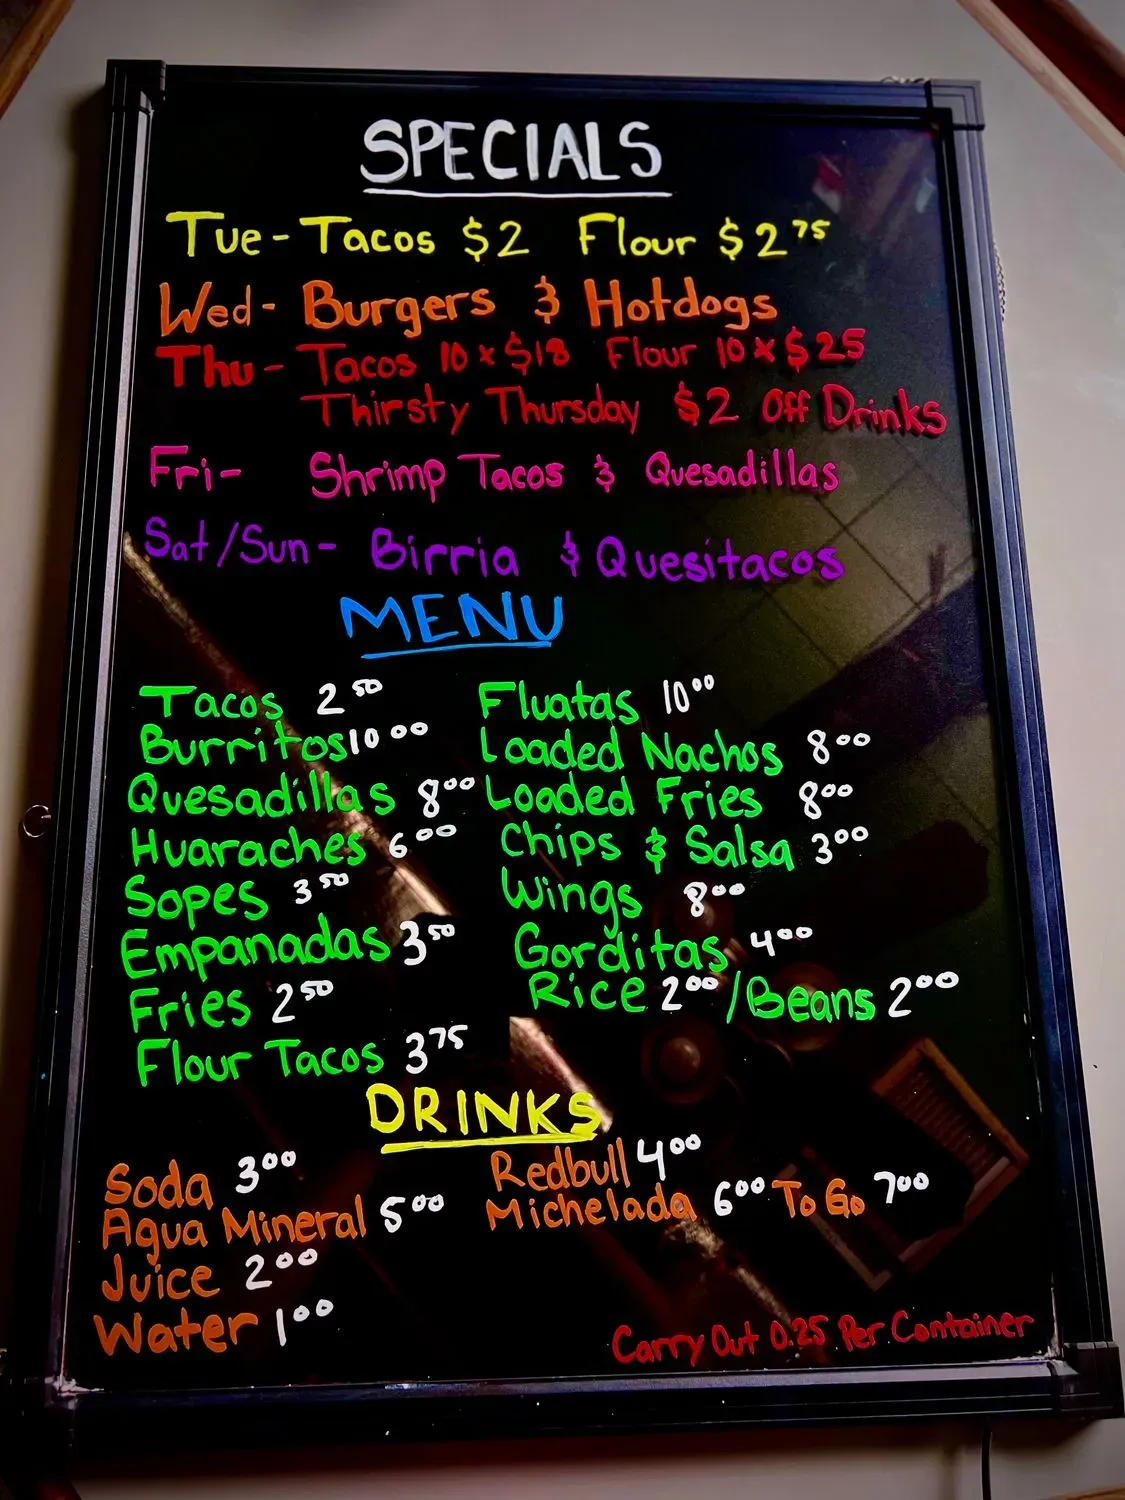 SPECIALS
Tue - Tacos $2 Flour $2 75
Wed - Burgers & Hotdogs
Thu - Tacos 10 x $18 Flour 10 x $25
Thirsty Thursday $2 Off Drinks
Fri - Shrimp Tacos & Quesadillas
Sat/Sun - Birria & Quesitacos
MENU
Tacos 2 50
Burritos 10 00
Quesadillas 8 00
Huaraches 6 00
Sopes 3 50
Empanadas 3 50
Fries 2 50
Flour Tacos 3 75
Fluatas 10 00
Loaded Nachos 8 00
Loaded Fries 8 00
Chips & Salsa 3 00
Wings 8 00
Gorditas 4 00
Rice 2 00 / Beans 2 00
DRINKS
Soda 3 00
Agua Mineral 5 00
Juice 2 00
Water 1 00
Redbull 4 00
Michelada 6 00 To Go 7 00
Carry Out 0.25 Per Container